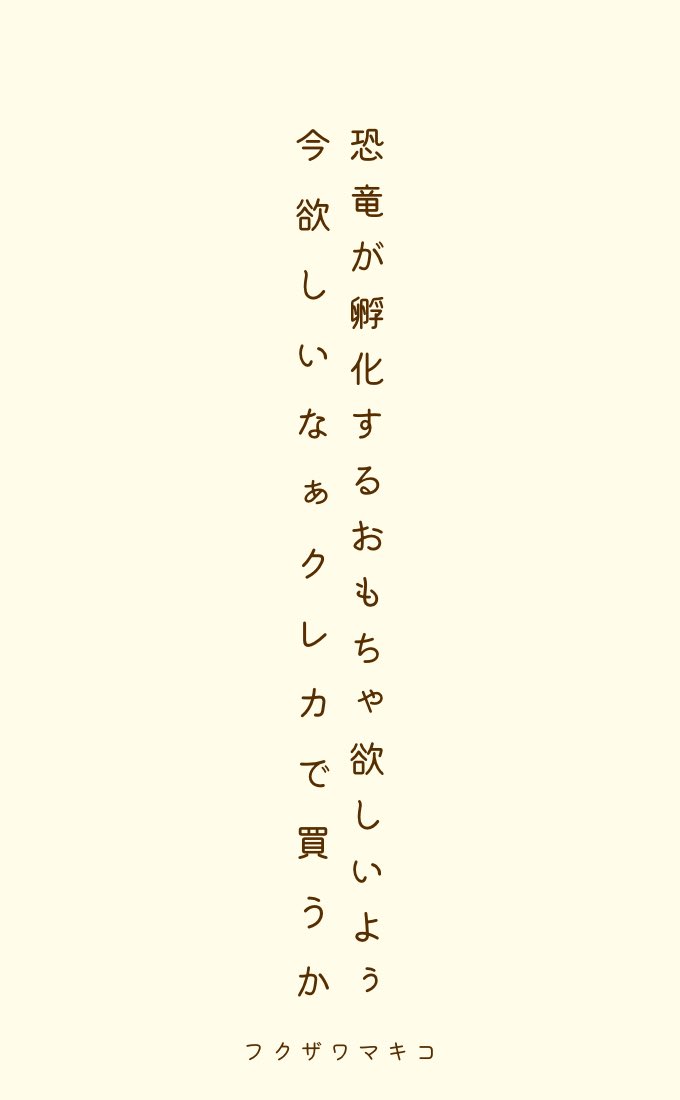 恐竜が孵化するおもちゃ欲しいよぅ
今欲しいなぁクレカで買うか
フクザワマキコ